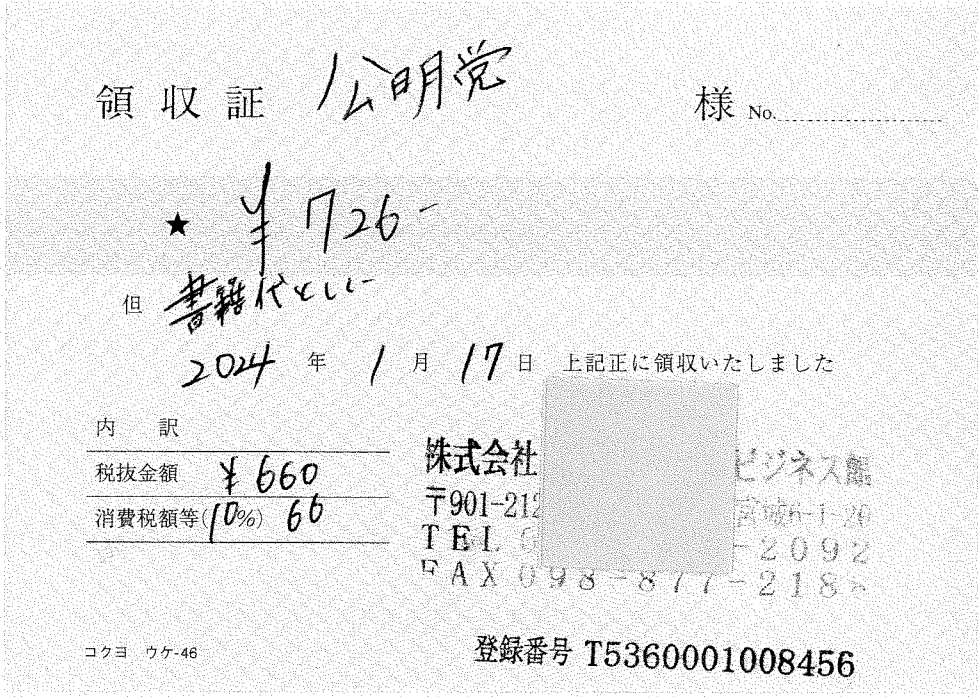 領収証 公明党 様 No.
★ ¥726-
但 書籍代として
2024年1月17日 上記正に領収いたしました
内訳
税抜金額 ¥660
消費税額等(10%) 66
株式会社 ビジネス館
〒901-212 宮城6-1-20
TEL 0 -2092
FAX 098-877-218
コクヨ ウケ-46
登録番号 T5360001008456